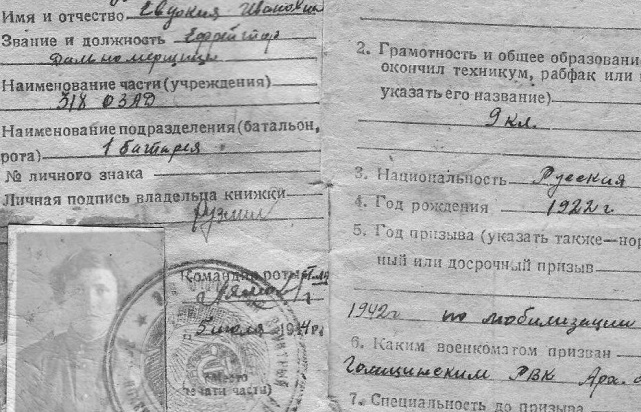 Имя и отчество Евдокия Ивановна
Звание и должность Ефрейтор
Дальномерщица
Наименование части (учреждения)
318 ОЗАД
Наименование подразделения (батальон,
рота) 1 батарея
№ личного знака
Личная подпись владельца книжки
Командир роты
5 июля 1944 г.
(Место
печати части)
2. Грамотность и общее образовани
окончил техникум, рабфак или
указать его название)
9 кл.
3. Национальность Русская
4. Год рождения 1922 г.
5. Год призыва (указать также—нор
ный или досрочный призыв
1942 г по мобилизации
6. Каким военкоматом призван
РВК
7. Специальность до призыва